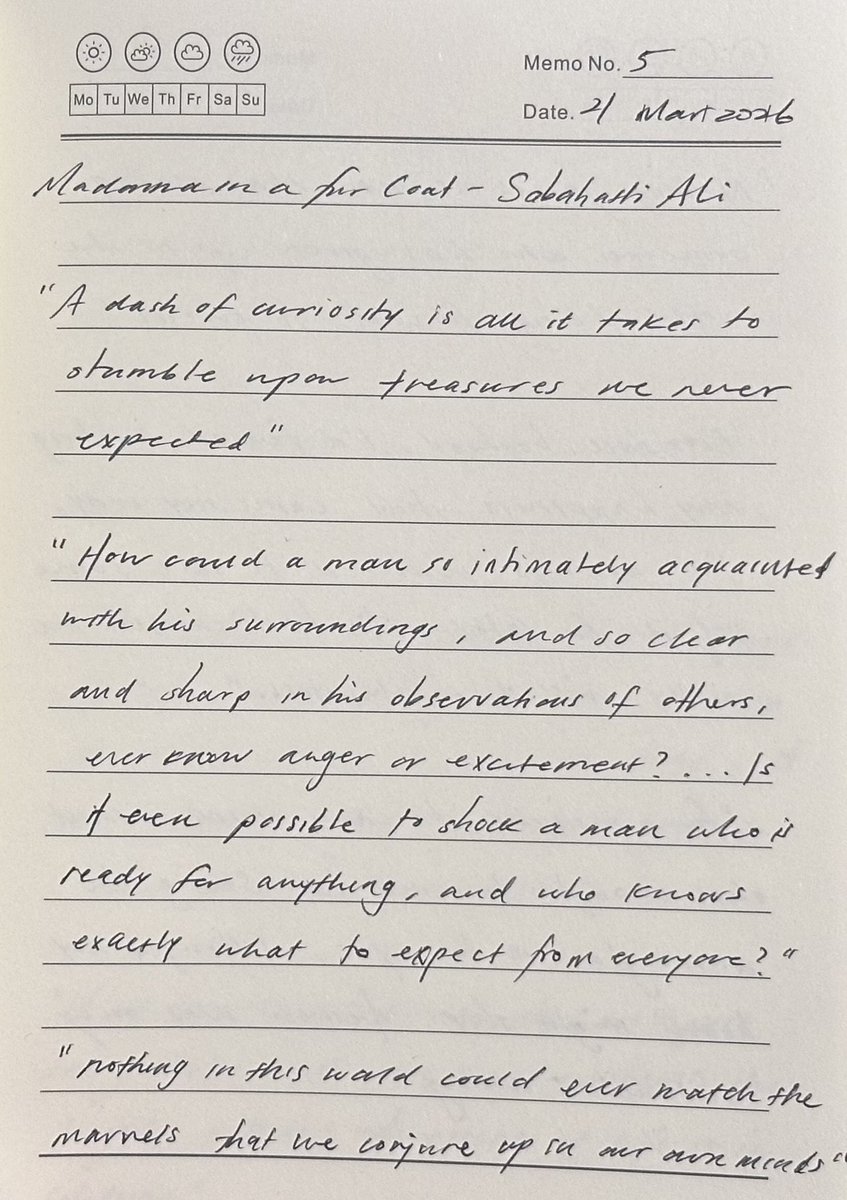 Memo No. 5
Mo Tu We Th Fr Sa Su
Date. 21 Mart 2026
Madonna in a fur Coat - Sabahatti Ali
"A dash of curiosity is all it takes to
stumble upon treasures we never
expected"
"How could a man so intimately acquainted
with his surroundings, and so clear
and sharp in his observations of others,
ever know anger or excitement?... Is
it even possible to shock a man who is
ready for anything, and who knows
exactly what to expect from everyone?"
"nothing in this world could ever match the
marvels that we conjure up in our own minds"